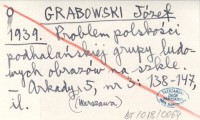 GRABOWSKI Józef
1939. Problem polskości
podhalańskiej grupy ludo-
wych obrazów na szkle.
— Arkady, 5, nr 3: 138-147,
il.
(Warszawa)